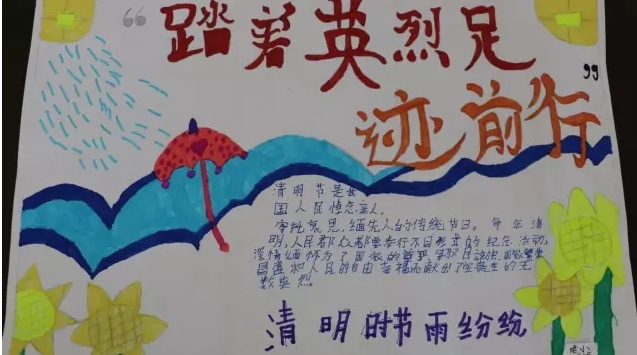 “踏着英烈足
迹前行”
清明节是我
国人民悼念亲人,
寄托哀思,缅先人的传统节日。每年清
明,人民群众都要举行不同形式的纪念活动,
深情缅怀为了国家的尊严 争取民族 国家繁荣
昌盛和人民的自由幸福而献出了宝贵生的无
数英烈
清明时节雨纷纷